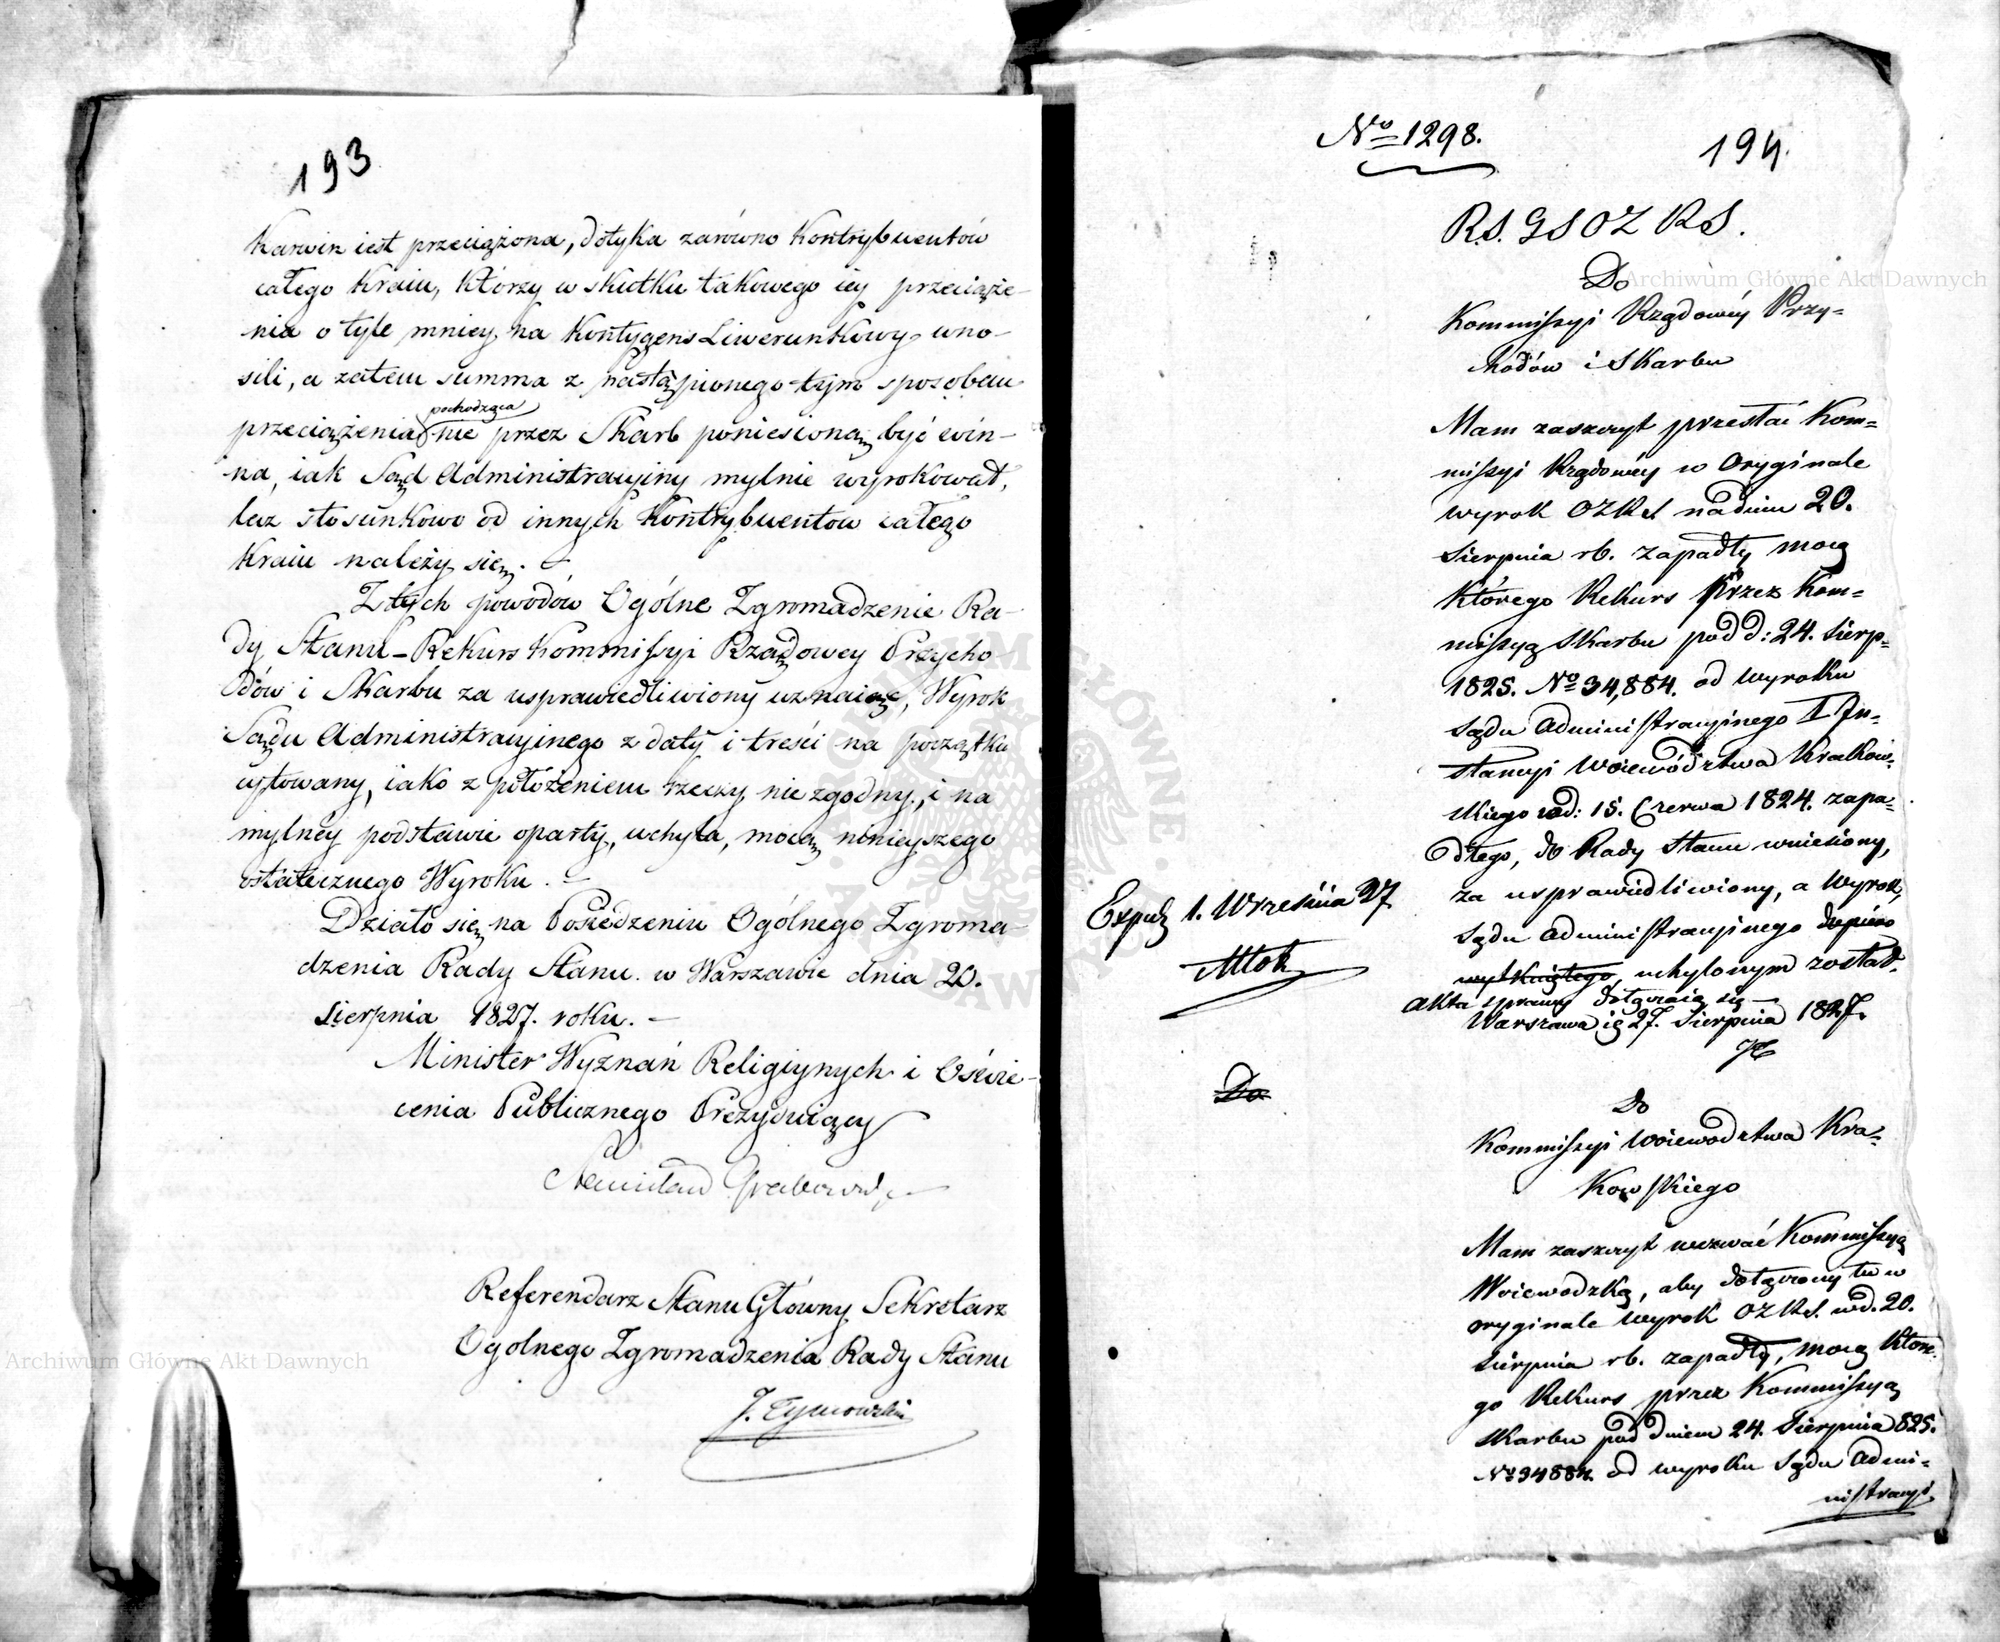 193
Karwin iest przeciążona, dotyka zarówno Kontrybuentów
całego Kraiu, którzy w skutku takowego iey przeciąże-
nia o tyle mniey na Kontygens Liwerunkowy wno-
sili, a zatem summa z nastąpionego tym sposobem
pochodząca
przeciążenia nie przez Skarb poniesioną być win-
na, iak Sąd Administracyiny mylnie wyrokował,
lecz stosunkowo od innych Kontrybuentów całego
Kraiu należy się. –
Z tych powodów Ogólne Zgromadzenie Ra-
dy Stanu – Rekurs Kommissyi Rządowey Przycho-
dów i Skarbu za usprawiedliwiony uznaiąc, Wyrok
Sądu Administracyinego z daty i treści na początku
cytowany, iako z położeniem rzeczy nie zgodny, i na
mylney podstawie oparty, uchyla, mocą ninieyszego
ostatecznego Wyroku. –
Działo się na Posiedzeniu Ogólnego Zgroma-
dzenia Rady Stanu w Warszawie dnia 20.
Sierpnia 1827. roku. –
Minister Wyznań Religiynych i Oświe-
cenia Publicznego Prezyduiący
Stanisław Grabowski
Referendarz Stanu Główny Sekretarz
Ogolnego Zgromadzenia Rady Stanu
J. Tymowski
No 1298.
194.
R.S. G S O Z R S.
Do
Kommissyi Rządowéy Przy-
chodów i Skarbu
Mam zaszczyt przesłać Kom-
missyi Rządowéy w Oryginale
wyrok OZRS. na dniu 20.
Sierpnia rb. zapadły mocą
którego Rekurs przez Kom-
missyą Skarbu pod d: 24. Sierp-
1825. No 34,884. od wyroku
Sądu Administracyinego I In-
stancyi Woiewództwa Krakow-
skiego wd: 15. Czerwca 1824. zapa-
dłego, do Rady Stanu wniesiony,
za usprawiedliwiony, a Wyrok,
Sądu Administracyinego dopiero
wytkniętego, uchylonym został.
akta sprawy dołączaią się –
Warszawa d 27. Sierpnia 1827.
Exped 1. Września 27
Młok
Do
Do
Kommissyi Woiewodztwa Kra-
kowskiego
Mam zaszczyt wezwać Kommissyą
Woiewodzką, aby dołączony tu w
oryginale Wyrok OZRS. wd. 20.
Sierpnia rb. zapadły, mocą które-
go Rekurs przez Kommissyą
Skarbu pod dniem 24. Sierpnia 825.
No 34884. od wyroku Sądu Admi-
nistracyi
Archiwum Główne Akt Dawnych
Archiwum Główne Akt Dawnych
ARCHIWUM GŁÓWNE AKT DAWNYCH